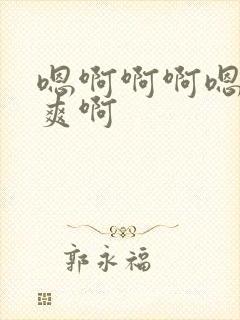 嗯啊啊啊嗯
爽啊
郭永福